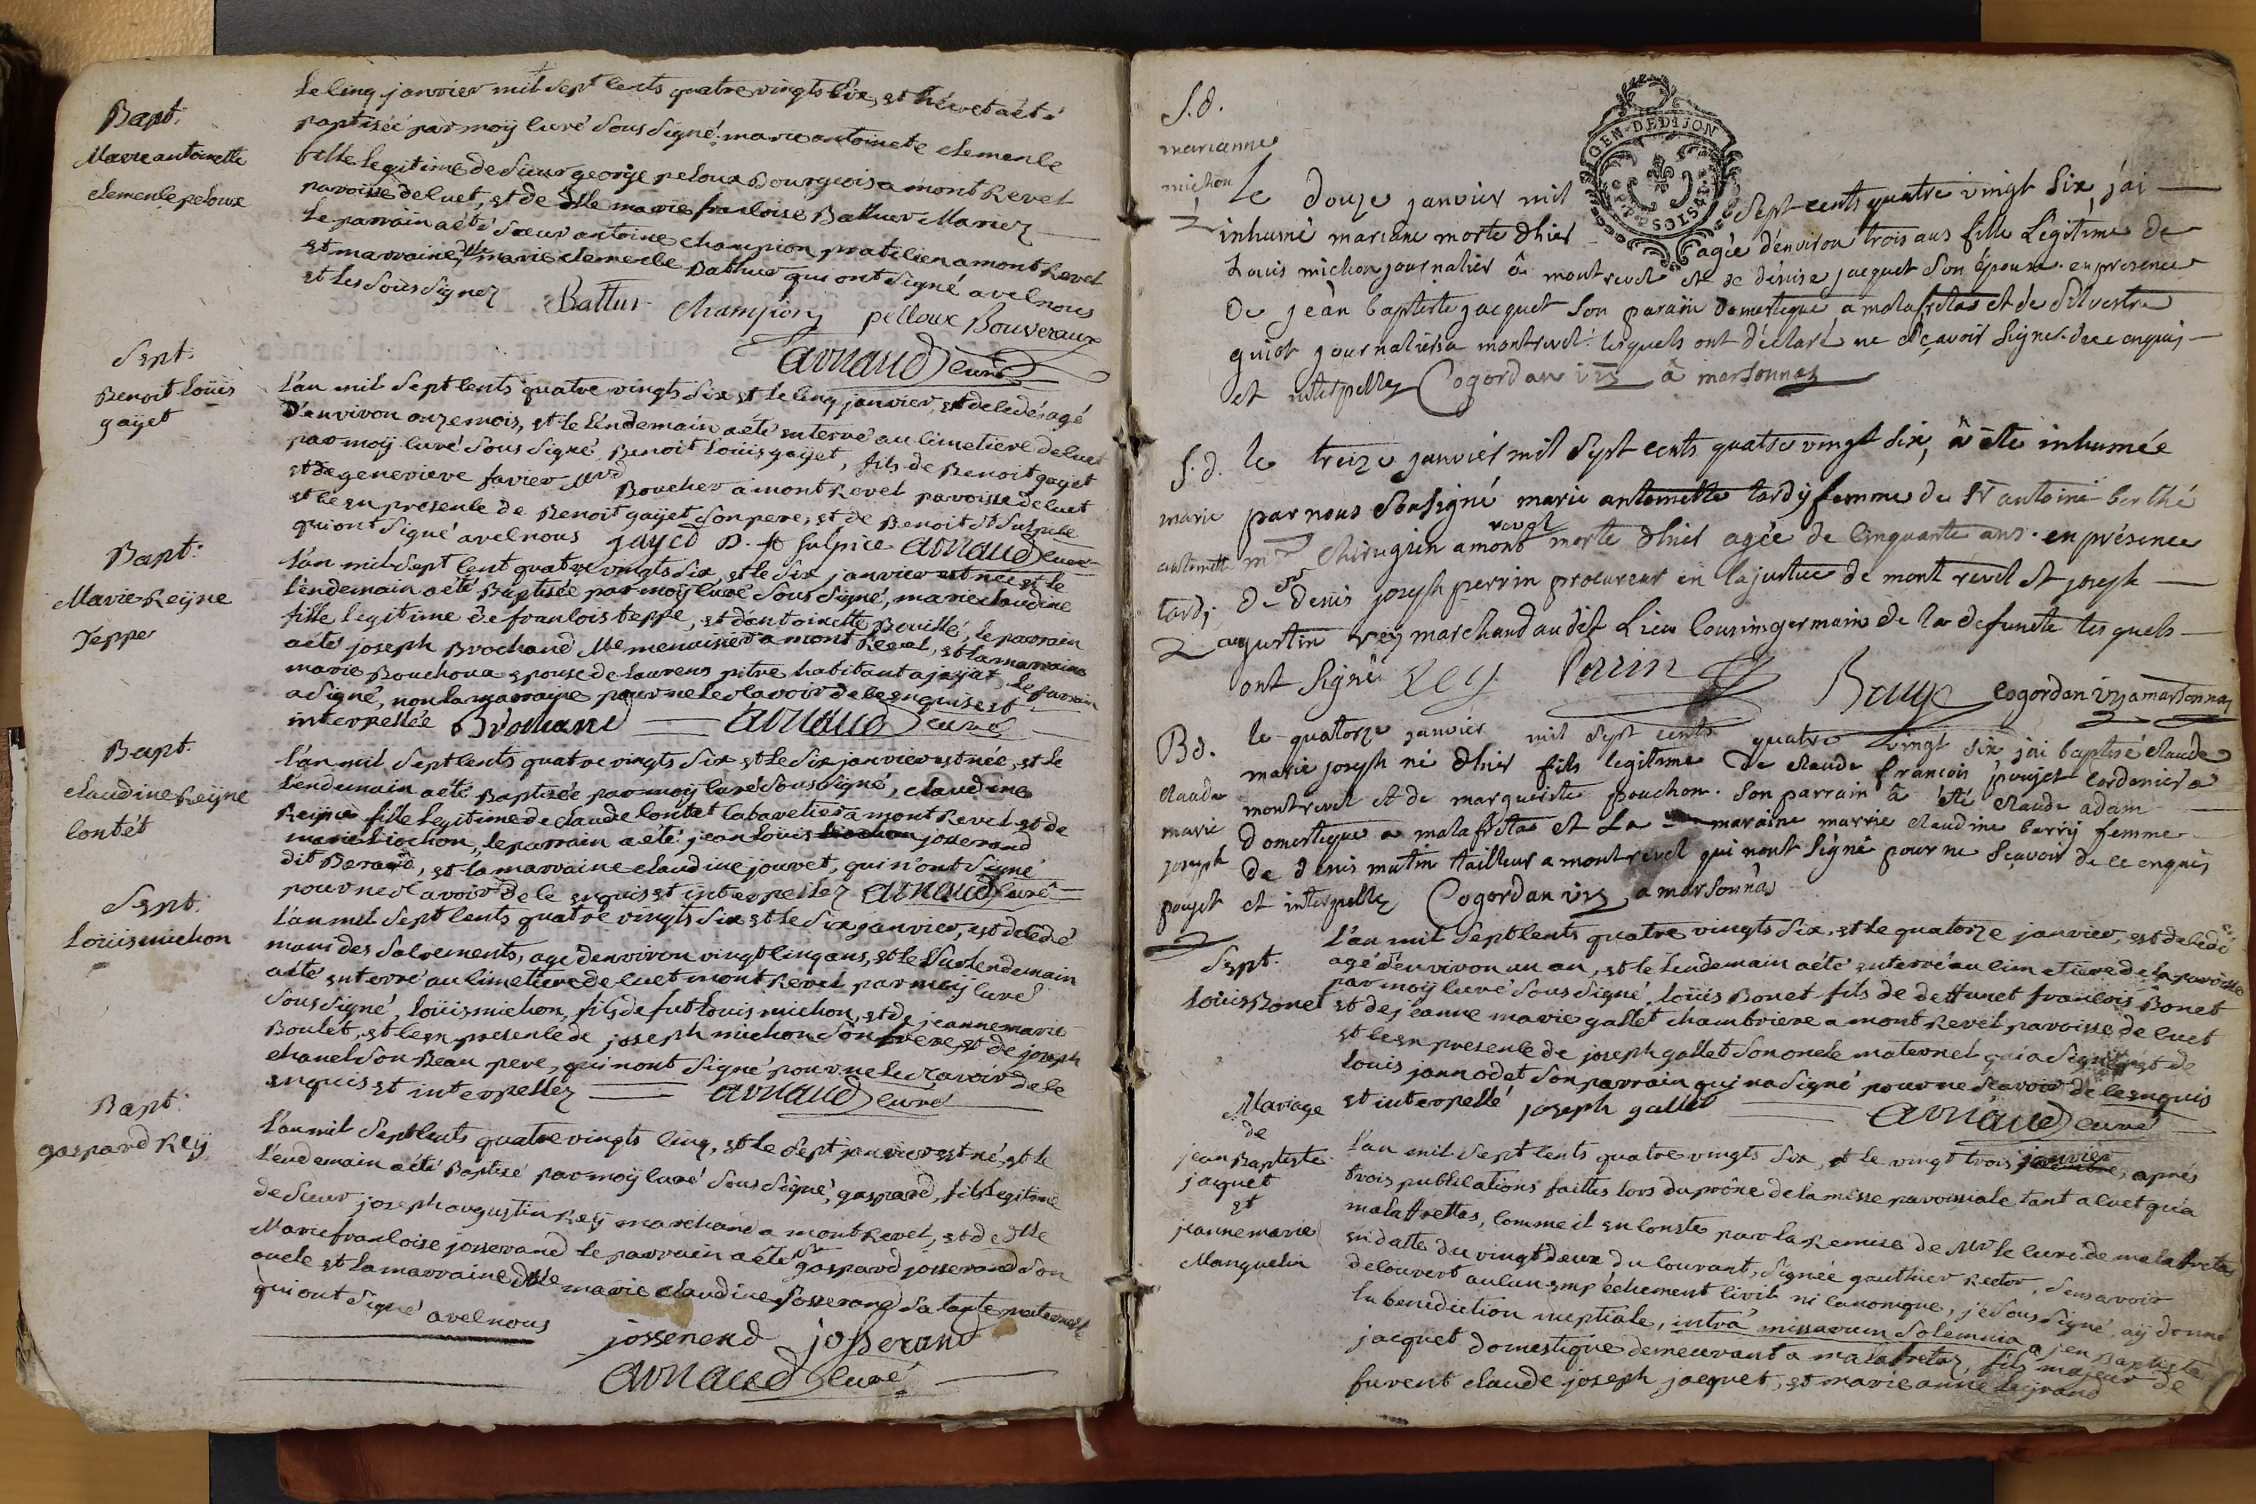 Bapt.
Marie antoinette
clemence peloux
Le cinq janvier mil sept cents quatre vingts six, est née et a été
baptisée par moÿ curé sous signé marie antoinete clemence
fille legitime de sieur george peloux Bourgeois a mont Revel
paroisse de cuet, et de dlle marie francoise Battur Mariez
Le parrain a été sieur antoine champion praticien a mont Revel
et marraine dlle marie clemence Battur qui ont signé avec nous
et les sous signez Battur champion pelloux Bouveraux
arnaud curé
Sept.
Benoit Loüis
gaÿet
L'an mil sept cents quatre vingts six et le cinq janvier, est decedé agé
d'environ onze mois, et le lendemain a été enterré au cimetiere de cuet
par moÿ curé sous signé, Benoit Loüis gaÿet, fils de Benoit gaÿet
et de genevieve favier Boucher a mont Revel paroisse de cuet
et ce en presence de Benoit gaÿet son pere, et de Benoit St Sulpice
qui ont signé avec nous gayed B. st sulpice arnaud curé
Bapt.
Marie Reÿne
Tepper
L'an mil sept cent quatre vingts six, et le six janvier est née et le
lendemain a été Baptisée par moÿ curé sous signé, marie claudine
fille legitime de francois teppe, et d'antoinette Bouillé, le parrain
a été joseph Brochand Me menuisier a mont Revel, et la marraine
marie Bouchoux epouse de laurens pitre habitant a jaÿat, le parrain
a signé, non la marraine pour ne le scavoir de ce enquise et
interpellée Brochand arnaud curé
Bapt.
claudine Reÿne
contét
L'an mil sept cents quatre vingts six et le six janvier est née, et le
lendemain a été Baptisée par moÿ curé sous signé, claudine
Reÿne fille legitime de claude contet cabaretier a mont Revel et de
marie Liochon, le parrain a été jean louis josserand
dit Berard, et la marraine claudine jouvet, qui n'ont signé
pour ne scavoir de ce enquis et interpellez arnaud curé
Sept.
Loüis michon
L'an mil sept cents quatre vingts six et le six janvier, est decedé
muni des sacrements, agé d'environ vingt cinq ans, et le surlendemain
a été enterré au cimetiere de cuet mont Revel par moÿ curé
sous signé, loüis michon, fils de fut louis michon, et de jeanne marie
Boulet, et ce en presence de joseph michon son frere, et de joseph
chanel son Beau pere, qui n'ont signé pour ne le scavoir de ce
enquis et interpellez arnaud curé
Bapt.
gaspard Reÿ
L'an mil sept cents quatre vingts cinq, et le sept janvier est né, et le
lendemain a été Baptisé par moÿ curé sous signé, gaspard, fils legitime
de sieur joseph augustin Reÿ marchand a mont Revel, et de dlle
Marie francoise josserand le parrain a été sr gaspard josserand son
oncle et la marraine dlle marie claudine Josserand sa tante maternelle
qui ont signé avec nous
josserend josserand
arnaud curé
S.d.
marianne
michon
GEN. DE DIJON
Le douze janvier mil sept cents quatre vingt six, j'ai
inhumé mariane morte d'hier agée d'environ trois ans fille Légitime de
Louis michon journalier à montrevel et de dénise jacquet son épouse en presence
de jean baptiste jacquet son parain domestique a malafretas et de Silvestre
guiot journalier a montrevel lesquels ont déclaré ne sçavoir signer de ce enquis
et interpellez Cogordan vic à marsonnas
S.d.
marie
antoinette
tardy
le treize janvier mil sept cents quatre vingt six, a été inhumée
par nous soussigné marie antoinette tardÿ femme de Sr antoine berthé
me chirugien a mont revel morte d'hier agée de cinquante ans en présence
de denis joseph perrin procureur en la justice de mont revel et joseph
augustin reÿ marchand audit Lieu cousin germain de la defuncte lesquels
ont signé Rey Perrin Cogordan vic a marsonnas
Bd.
claude
marie
joseph
poujet
le quatorze janvier mil sept cents quatre vingt six j'ai baptisé claude
marie joseph né d'hier fils legitime de claude francois poujet cordonier a
montrevel et de marguerite pouchon. Son parrain a été claude adam
domestique a malafretas et La maraine marrie claudine barrÿ femme
de denis matin tailleur a montrevel qui n'ont signé pour ne sçavoir de ce enquis
et interpellez Cogordan vic a marsonnas
Sept.
Loüis Bonet
L'an mil sept cents quatre vingts six, et le quatorze janvier, est decedé
agé d'environ un an, et le lendemain a été enterré au cimetiere de la paroisse
par moÿ curé sous signé, Loüis Bonet fils de deffunct francois Bonet
et de jeanne marie gallet chambriere a mont Revel paroisse de cuet
et ce en presence de joseph gallet son oncle maternel qui a signé et de
Louis jannodet son parrain qui n'a signé pour ne scavoir de ce enquis
et interpellé joseph gallet arnaud curé
Mariage
de
jean Baptiste
jaquet
et
jeanne marie
Manguelin
L'an mil sept cents quatre vingts six, et le vingt trois janvier, aprés
trois publications faittes lors du prône de la messe paroissiale tant a cuet qu'a
malaffrettas, comme il en conste par la Remise de Mr le curé de malafretas
en datte du vingt deux du courant, signée gauthier Rector, sans avoir
decouvert aulcun empéchement civil ni canonique, je sous signé aÿ donné
la benediction nuptiale, intra missarum solemnia a jean Baptiste
jacquet domestique demeurant a malafretaz, fils majeur de
furent claude joseph jacquet, et marie anne Legrand